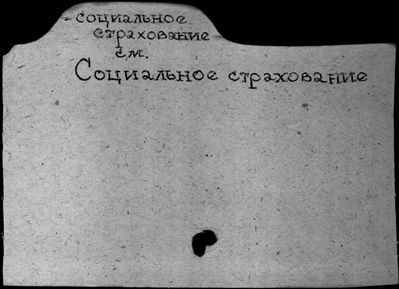 социальное
страхование
см.
Социальное страхование